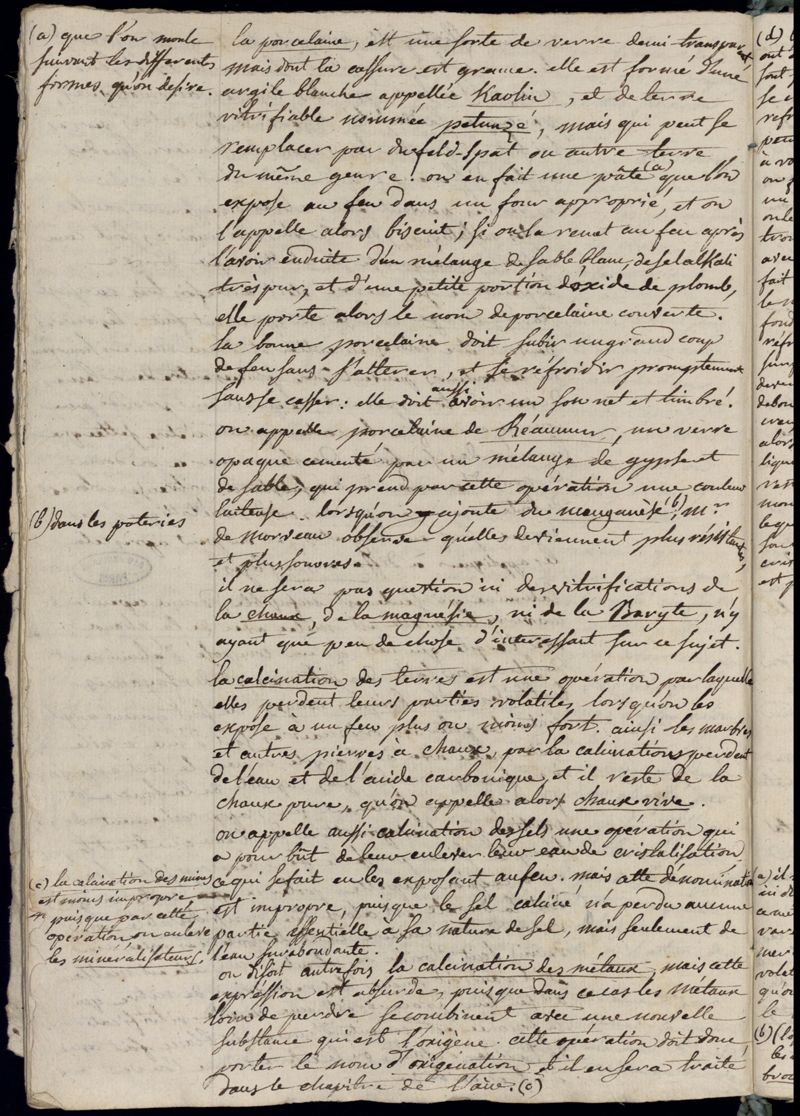 (a) que l'on moule
suivant les differentes
formes qu'on desire.
la porcelaine, est une sorte de verre demi-transparent
mais dont la cassure est grenue. elle est formé d'une
argile blanche appellée Kaolin, et de terre
vitrifiable nommée petunzé, mais qui peut se
remplacer par du feld-spat ou autre terre
du même genre. on en fait une pâte (a) que l'on
expose au feu dans un four approprié, et on
l'appelle alors biscuit; si on la remet au feu après
l'avoir enduite d'un mélange de sable blanc, de sel alkali
très pur, et d'une petite portion d'oxide de plomb,
elle porte alors le nom de porcelaine couverte.
la bonne porcelaine doit subir un grand coup
de feu sans s'alterer, et se réfroidir promptement
sans se casser: elle doit aussi avoir un son net et timbré.
on appelle porcelaine de Réaumur, un verre
opaque cementé par un mélange de gypse et
de sable, qui prend par cette opération une couleur
laiteuse. lorsqu'on y ajoute du menganèsé (b), mr.
(b) dans les poteries
de morveau observe qu'elles deviennent plus résistantes,
et plus sonores.
il ne sera pas question ici des vitrifications de
la chaux, de la magnésie, ni de la Baryte, n'y
ayant que peu de chose d'interessant sur ce sujet.
la calcination des terres est une opération par laquelle
elles perdent leurs parties volatiles, lorsqu'on les
expose à un feu plus ou moins fort. ainsi les marbres
et autres pierres à chaux, par la calcination, perdent
de l'eau et de l'acide carbonique, et il reste de la
chaux pure, qu'on appelle alors chaux vive.
on appelle aussi calcination des sels une opération qui
a pour but de leur enlever leur eau de cristalisation,
ce qui se fait en les exposant au feu. mais cette dénomination
est impropre, puisque le sel calciné n'a perdu aucune
partie essentielle à sa nature de sel, mais seulement de
l'eau surabondante.
(c) la calcination des mines
est moins impropre
puisque par cette
opération on enleve
les minéralisateurs.
on disoit autrefois la calcination des métaux, mais cette
expréssion est absurde, puisque dans ce cas les métaux
loin de perdre se combinent avec une nouvelle
substance qui est l'oxigène. cette opération doit donc
porter le nom d'oxigénation et il en sera traité
dans le chapitre de l'air. (c)